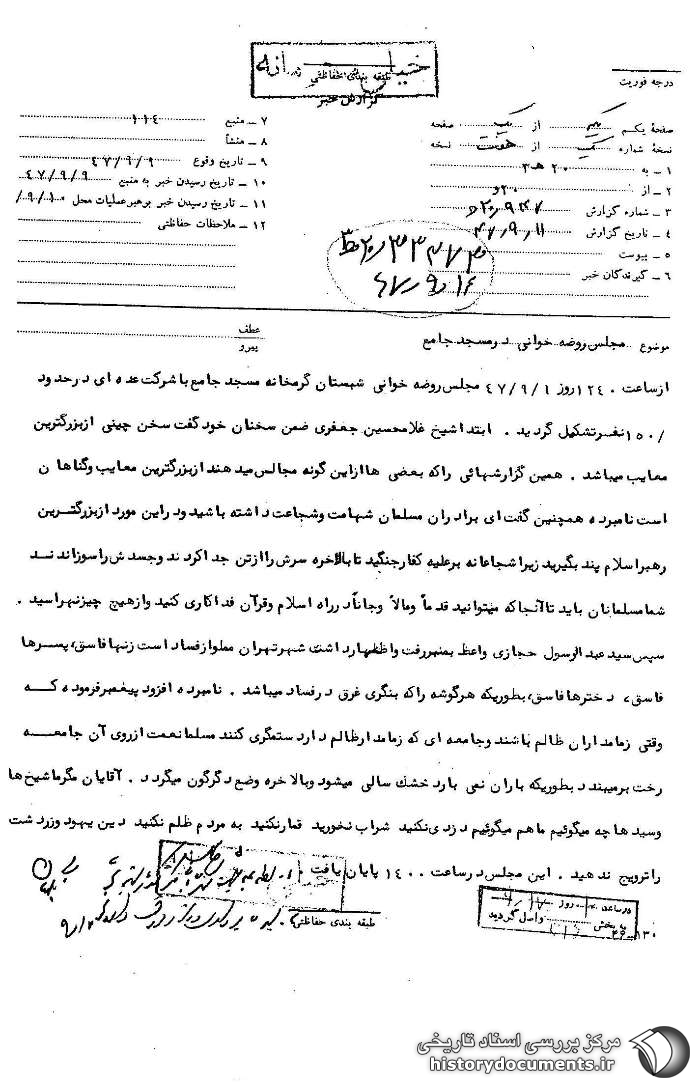 خیلی محرمانه
طبقه بندی حفاظتی
گزارش خبر
درجه فوریت
صفحهٔ یکم یک از یک صفحه
نسخهٔ شماره یک از هفت نسخه
۱ ـ به ۲۰ هـ ۳
۲ ـ از ۲۰ و
۳ ـ شماره گزارش
۴ ـ تاریخ گزارش ۴۷/۹/۱۱
۵ ـ پیوست
۶ ـ گیرندگان خبر
۷ ـ منبع ۱۱۴
۸ ـ منشأ
۹ ـ تاریخ وقوع ۴۷/۹/۹
۱۰ ـ تاریخ رسیدن خبر به منبع ۴۷/۹/۹
۱۱ ـ تاریخ رسیدن خبر برهبر عملیات محل /۹/۱۰
۱۲ ـ ملاحظات حفاظتی
موضوع مجلس روضه خوانی در مسجد جامع
عطف
پیرو
از ساعت ۱۲۴۰ روز ۴۷/۹/۹ مجلس روضه خوانی شبستان گرمخانه مسجد جامع با شرکت عده ای در حدود
/۱۵۰ نفر تشکیل گردید . ابتدا شیخ غلامحسین جعفری ضمن سخنان خود گفت سخن چینی از بزرگترین
معایب میباشد . همین گزارشهائی راکه بعضی ها از این گونه مجالس میدهند از بزرگترین معایب وگناهان
است نامبرده همچنین گفت ای برادران مسلمان شهامت وشجاعت داشته باشید ودر این مورد از بزرگترین
رهبر اسلام پند بگیرید زیرا شجاعانه برعلیه کفار جنگید تا بالاخره سرش را از تن جدا کردند وجسدش را سوزاندند
شما مسلمانان باید تا آنجا که میتوانید قدماً ومالاً وجاناً در راه اسلام وقرآن فداکاری کنید واز هیچ چیز نهراسید .
سپس سید عبدالرسول حجازی واعظ بمنبر رفت واظهار داشت شهر تهران مملو از فساد است زنها فاسق، پسرها
فاسق، دخترها فاسق، بطوریکه هر گوشه راکه بنگری غرق در فساد میباشد . نامبرده افزود پیغمبر فرموده که
وقتی زمامداران ظالم باشند وجامعه ای که زمامدار ظالم دارد ستمگری کنند مسلما نعمت از روی آن جامعه
رخت برمیبندد بطوریکه باران نمی بارد خشک سالی میشود وبالاخره وضع دگرگون میگردد . آقایان مگر ما شیخ ها
وسیدها چه میگوئیم ما هم میگوئیم دزدی نکنید شراب نخورید قمار نکنید به مردم ظلم نکنید دین یهود وزردشت
را ترویج ندهید . این مجلس در ساعت ۱۴۰۰ پایان یافت .
طبقه بندی حفاظتی
در ساعت روز
به بخش واصل گردید
مرکز بررسی اسناد تاریخی
historydocuments.ir